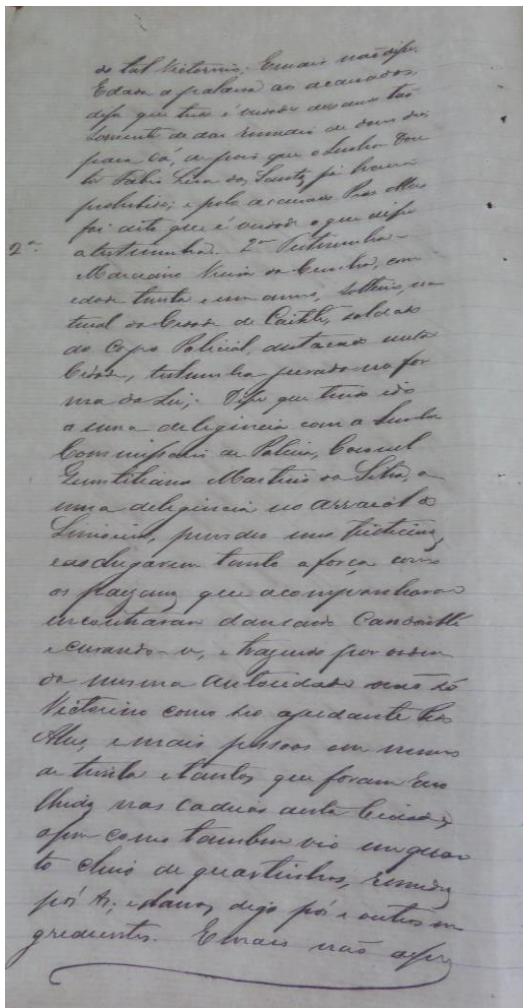 do tal Victorino; E mais não disse.
E dada a palavra ao acusados,
disse que tudo é verdade
somente de dar remedio de dous dias
para cá, depois que o Senhor Dou
tor Fabio Lira dos Santos já havia
prohibido; e pelo accusado Alves
foi dito que é verdade o que disse
2ª
a testimunha. 2ª Testimunha
Marcolino Vieira da Cunha, com
idade trinta e um annos, solteiro, na
tural da Cidade de Caitité, soldado
do Corpo Policial, destacado nesta
Cidade, testimunha jurada na for
ma da Lei; Disse que tendo ido
a uma deligencia com o Senhor
Commissario de Policia, Coronel
Martins da Silva, a
uma deligencia no arraial do
prender uns feiticeiros
e ao chegarem tanto a força como
os paizanos que acompanharam
encontraram dansando Candomblé
e curando-se, e trazendo por ordem
da mesma autoridade não só
Victorino como seo ajudante
Alves, e mais pessoas em numero
de trinta e tantos que foram reco
lhidos nas cadeias desta Cidade,
assim como tambem vio um quar
to cheio de quartinhos, remedios
pós &; digo pós e outros in
gredientes. E mais não disse